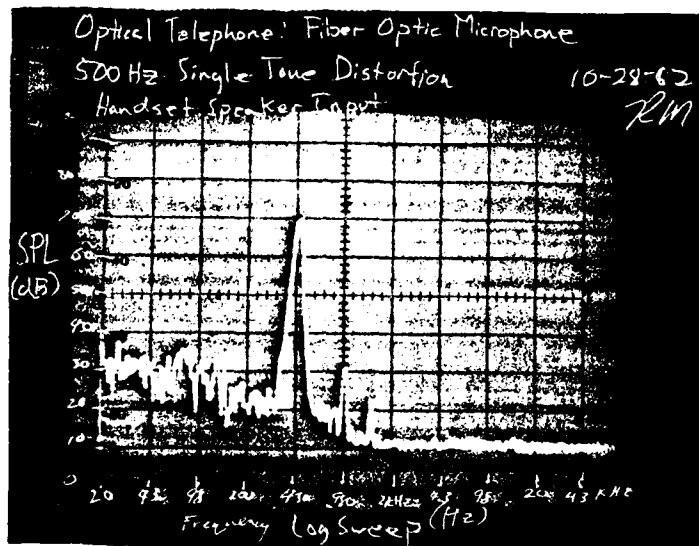 Optical Telephone: Fiber Optic Microphone
500 Hz Single Tone Distortion 10-28-82
Handset Speaker Input RM
70
SPL 60
(dB) 50
40
30
20
10
0
20 43 93 200 430 930 2KHz 4.3 9.3 20 43 KHz
Frequency Log Sweep (Hz)